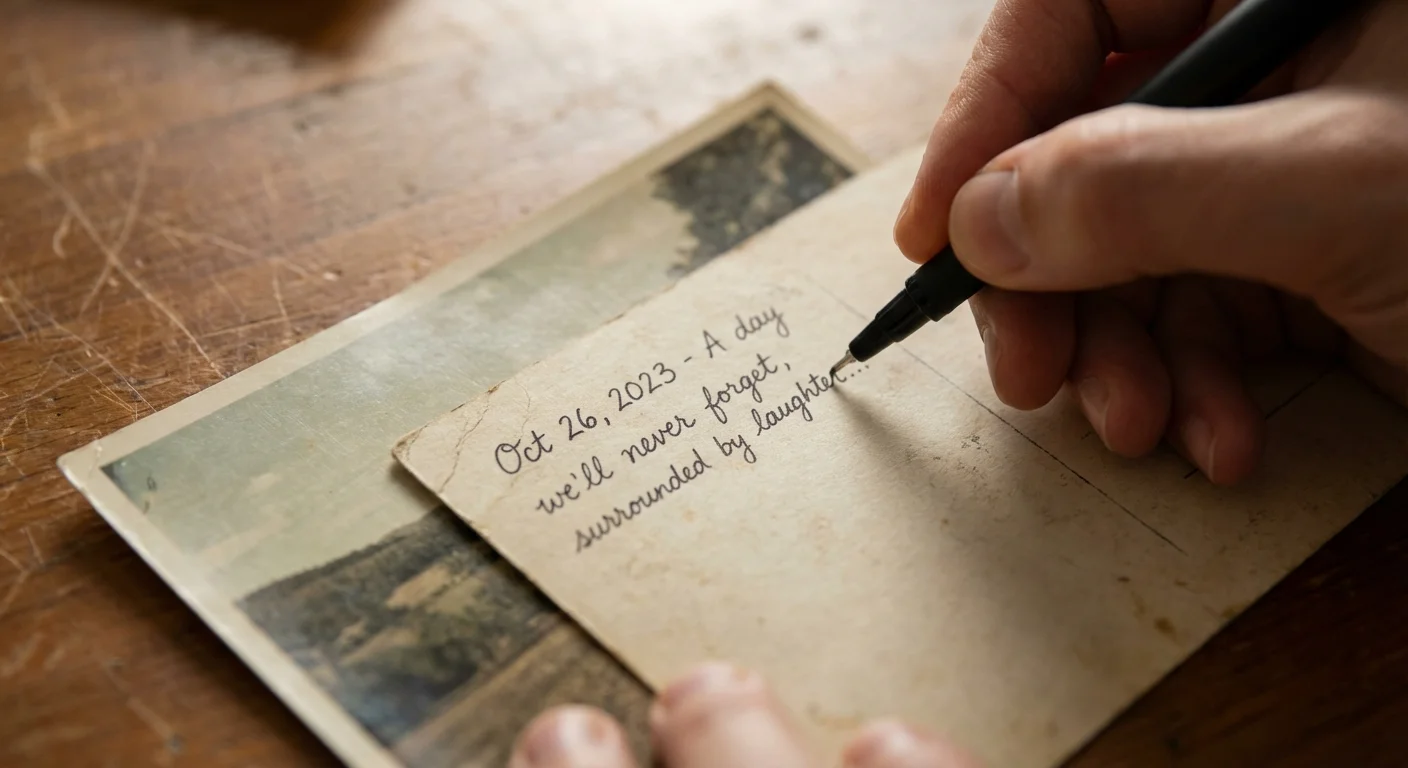 Oct 26, 2023 - A day
we'll never forget,
surrounded by laughter...